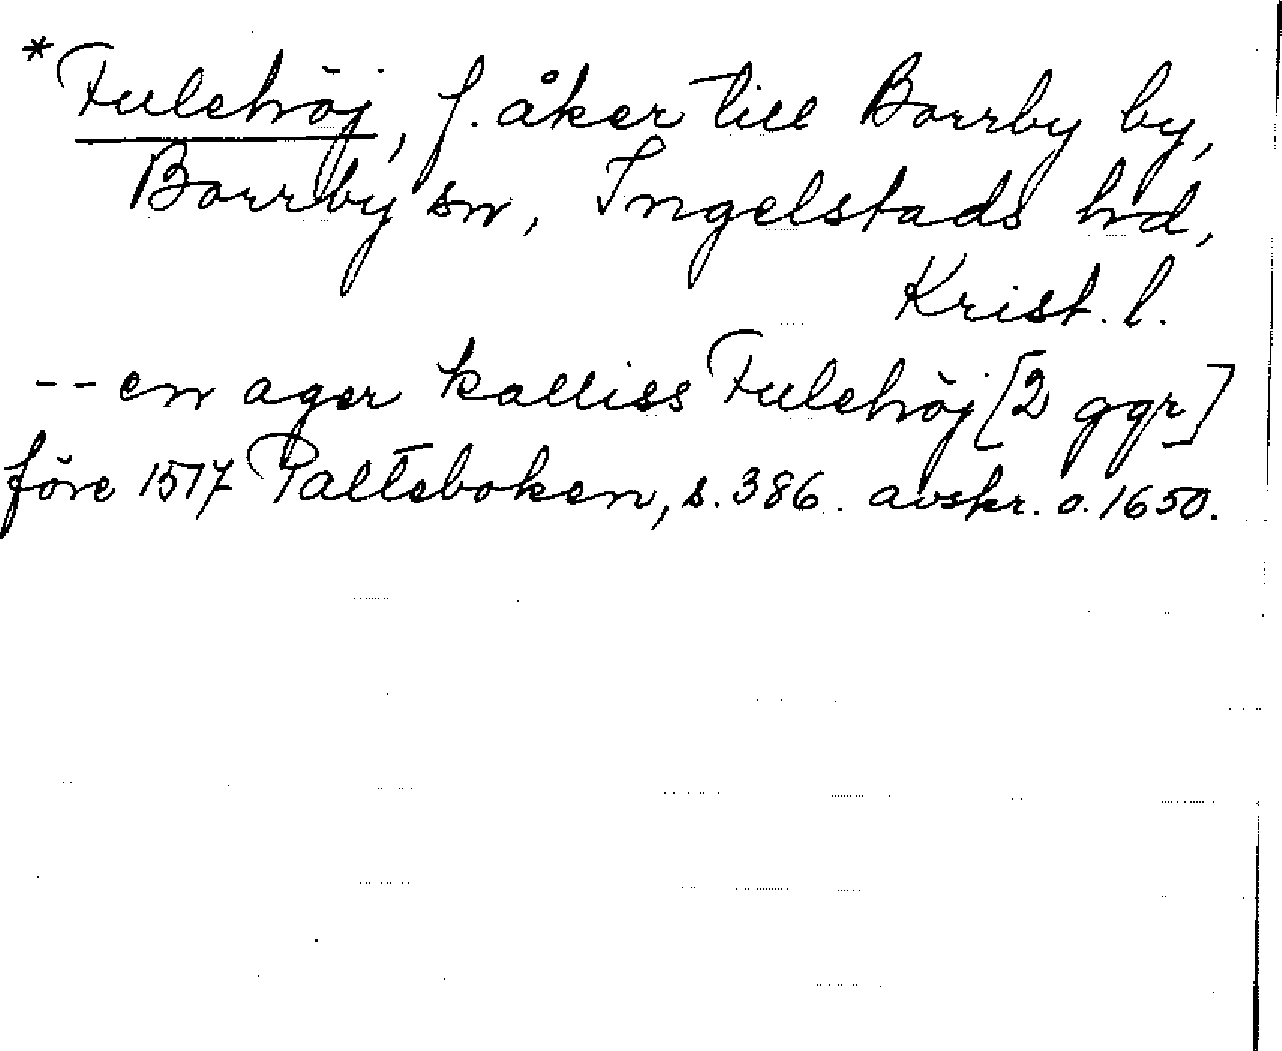 *Fulehöj, f. åker till Borrby by,
Borrby sn, Ingelstads hd,
Krist. l.
-- en ager kalliss Fulehöj [2 ggr]
före 1517 Palteboken, s. 386. avskr. o. 1650.